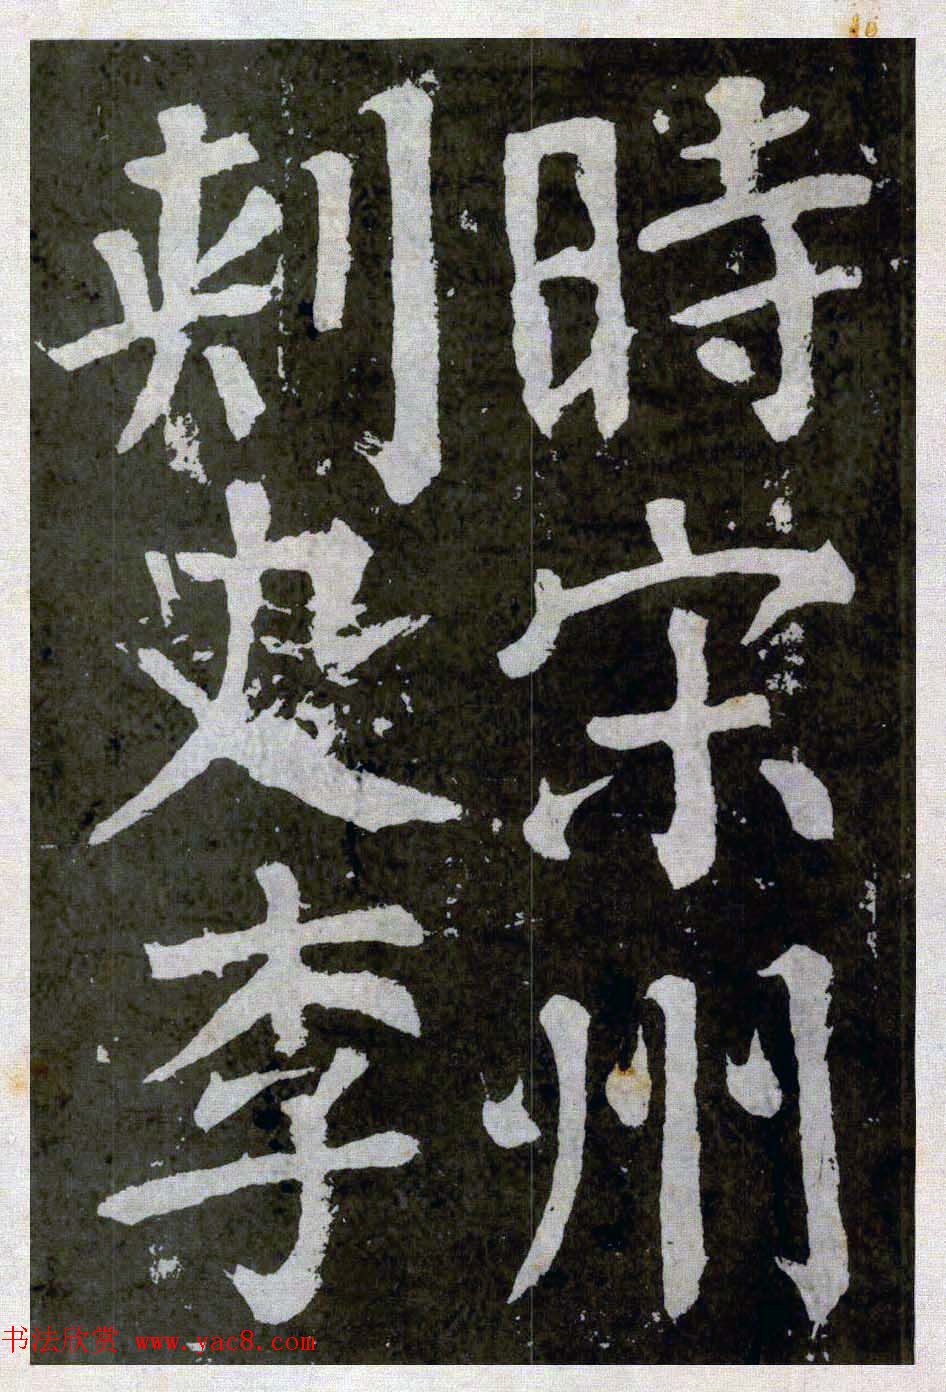 時宋州
刺史李
书法欣赏 www.yac8.com